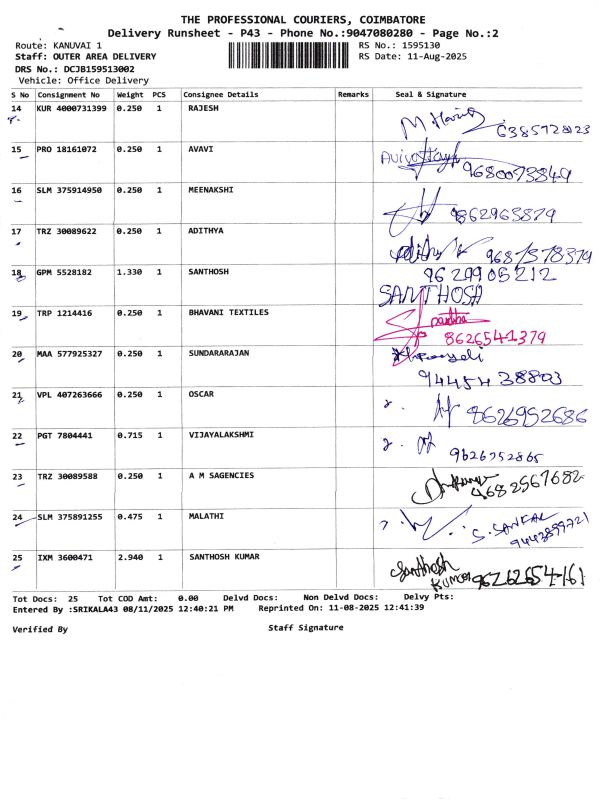 THE PROFESSIONAL COURIERS, COIMBATORE
Delivery Runsheet - P43 - Phone No.:9047080280 - Page No.:2
Route: KANUVAI 1
RS No.: 1595130
Staff: OUTER AREA DELIVERY
RS Date: 11-Aug-2025
DRS No.: DCJB159513002
Vehicle: Office Delivery
S No Consignment No Weight PCS Consignee Details Remarks Seal & Signature
14 KUR 4000731399 0.250 1 RAJESH
15 PRO 18161072 0.250 1 AVAVI
9680073849
16 SLM 375914950 0.250 1 MEENAKSHI
862963879
17 TRZ 30089622 0.250 1 ADITHYA
18 GPM 5528182 1.330 1 SANTHOSH 9629905212
SANTHOSH
19 TRP 1214416 0.250 1 BHAVANI TEXTILES
8626541379
20 MAA 577925327 0.250 1 SUNDARARAJAN
9445438803
21 VPL 407263666 0.250 1 OSCAR
8626952686
22 PGT 7804441 0.715 1 VIJAYALAKSHMI
9626352865
23 TRZ 30089588 0.250 1 A M SAGENCIES
24 SLM 375891255 0.475 1 MALATHI
S. SANKAR
25 IXM 3600471 2.940 1 SANTHOSH KUMAR Santhosh
Kumar 96262654161
Tot Docs: 25 Tot COD Amt: 0.00 Delvd Docs: Non Delvd Docs: Delvy Pts:
Entered By :SRIKALA43 08/11/2025 12:40:21 PM Reprinted On: 11-08-2025 12:41:39
Verified By Staff Signature